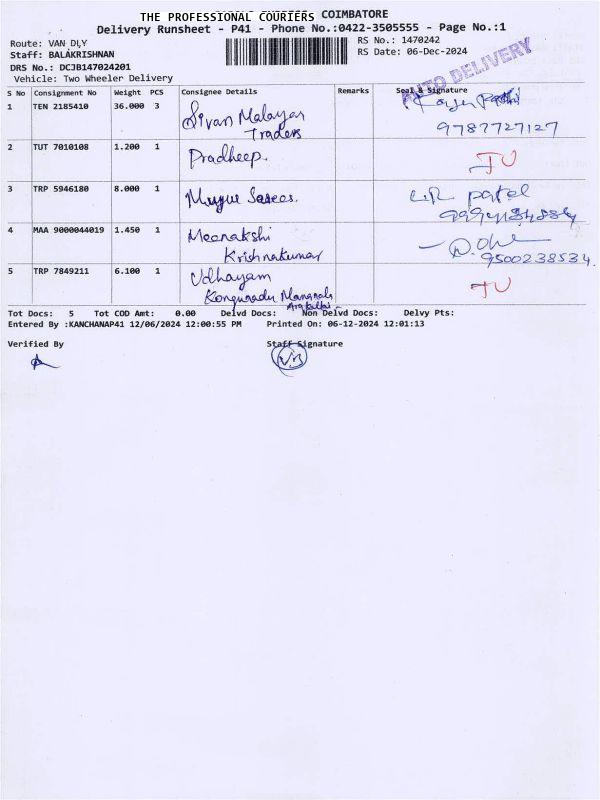 THE PROFESSIONAL COURIERS COIMBATORE
Delivery Runsheet - P41 - Phone No.:0422-3505555 - Page No.:1
Route: VAN DLY
RS No.: 1470242
Staff: BALAKRISHNAN
RS Date: 06-Dec-2024
DRS No.: DCJB147024201
Vehicle: Two Wheeler Delivery
AUTO DELIVERY
S No Consignment No Weight PCS Consignee Details Remarks Seal & Signature
1 TEN 2185410 36.000 3 Sivan Malayan
Traders 9787727127
2 TUT 7010108 1.200 1 Pradheep. JU
3 TRP 5946180 8.000 1 Sarees. patel
4 MAA 9000044019 1.450 1 Meenakshi
Krishnakumar 9500238534.
5 TRP 7849211 6.100 1 Udhayam JU
Kongunadu
Tot Docs: 5 Tot COD Amt: 0.00 Delvd Docs: Non Delvd Docs: Delvy Pts:
Entered By :KANCHANAP41 12/06/2024 12:00:55 PM Printed On: 06-12-2024 12:01:13
Verified By Staff Signature